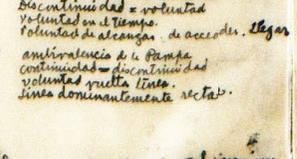 Discontinuidad = voluntad
voluntad en el tiempo.
voluntad de alcanzar. de acceder. Llegar
ambivalencia de la Pampa
continuidad = discontinuidad
voluntad vuelta línea.
línea dominantemente recta.